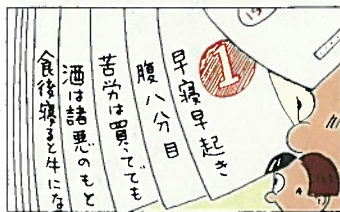 1
早寝早起き
腹八分目
苦労は買ってでも
酒は諸悪のもと
食後寝ると牛にな